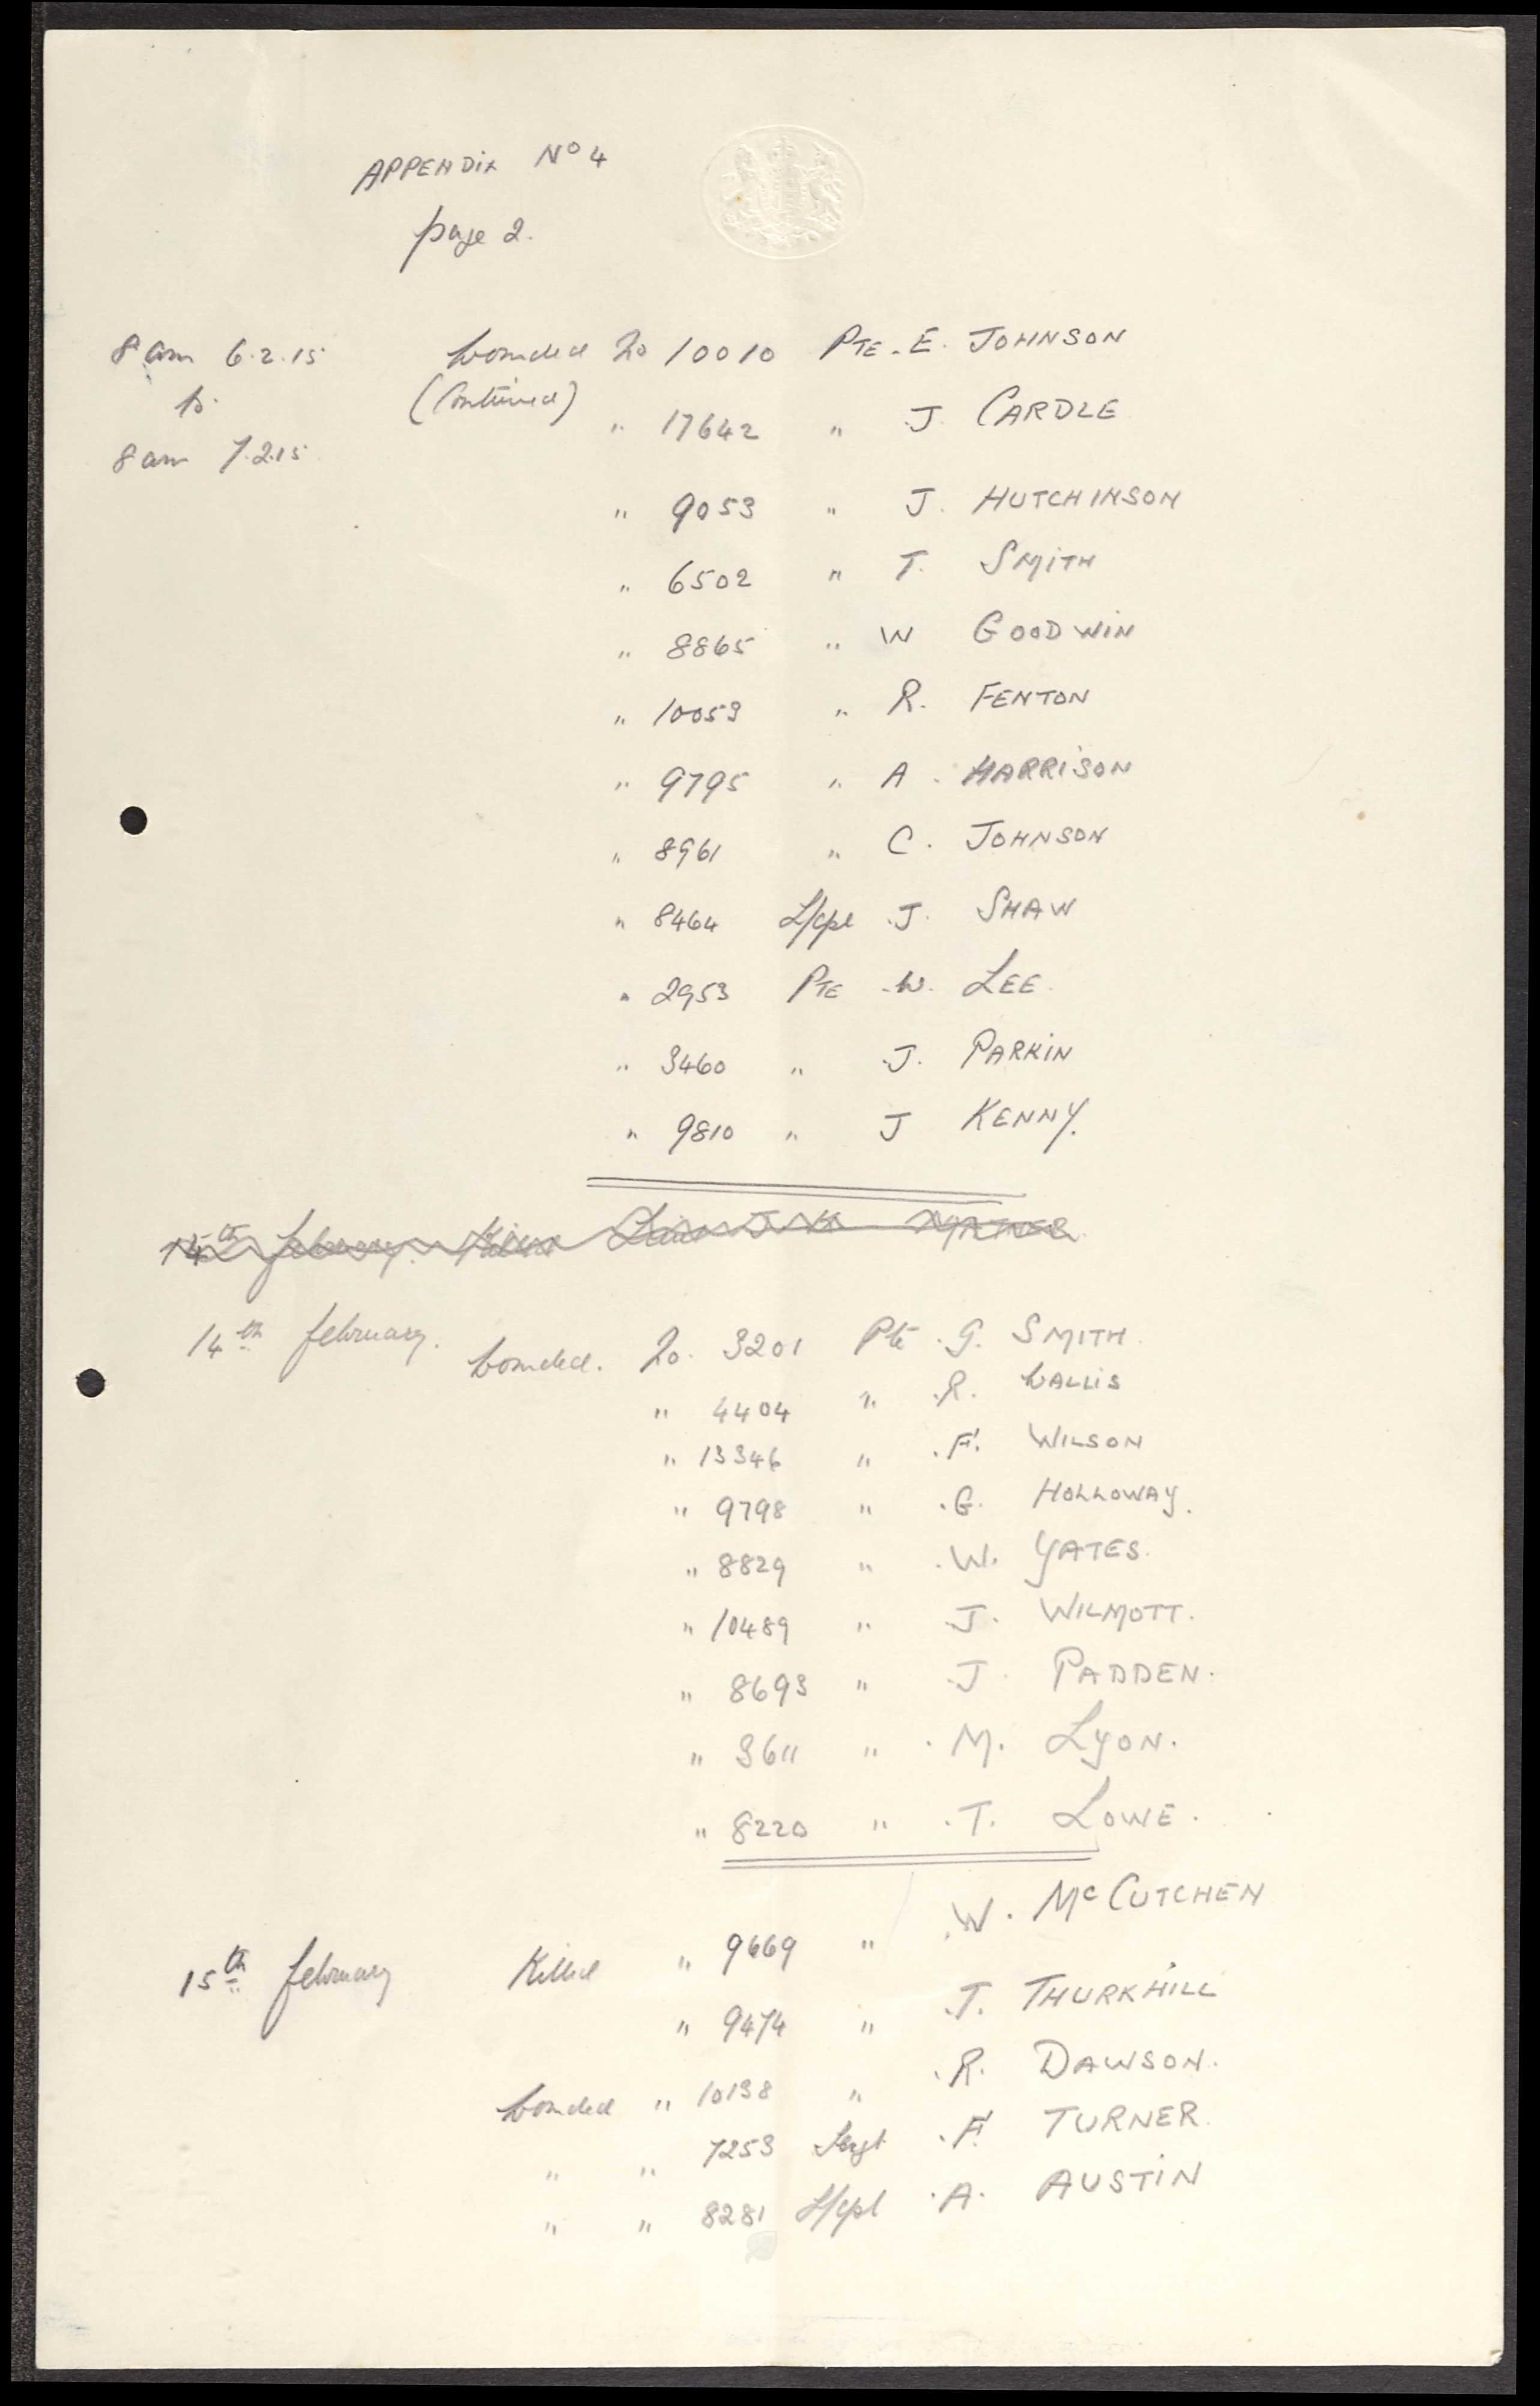 APPENDIX No 4
page 2.
8 am 6.2.15 Wounded No 10010 PTE. E. JOHNSON
to (Continued) " 17642 " J. CARDLE
8 am 7.2.15
" 9053 " J. HUTCHINSON
" 6502 " T. SMITH
" 8865 " W GOODWIN
" 10053 " R. FENTON
" 9795 " A. HARRISON
" 8961 " C. JOHNSON
" 8464 L/cpl J. SHAW
" 2953 PTE W. LEE.
" 3460 " J. PARKIN
" 9810 " J KENNY.
14th February. Killed Lieut J.H.
14th February. Wounded. No. 3201 Pte G. SMITH.
" 4404 " R. WALLIS
" 13346 " F. WILSON
" 9798 " G. HOLLOWAY.
" 8829 " W. YATES.
" 10489 " J. WILMOTT.
" 8693 " J. PADDEN.
" 3611 " M. LYON.
" 8220 " T. LOWE.
15th February Killed " 9669 " W. McCUTCHEN
" 9474 " T. THURKHILL
Wounded " 10138 " R. DAWSON.
" " 7253 Sergt. F. TURNER.
" " 8281 L/cpl A. AUSTIN